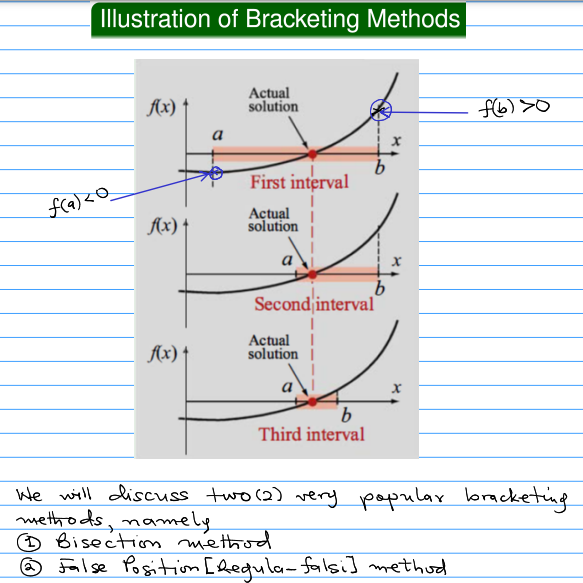 Illustration of Bracketing Methods
f(x)
Actual
solution
f(b) >0
a
x
b
First interval
f(a)<0
f(x)
Actual
solution
a
x
b
Second interval
f(x)
Actual
solution
a
x
b
Third interval
We will discuss two(2) very popular bracketing
methods, namely
① Bisection method
② False Position [Regula-falsi] method